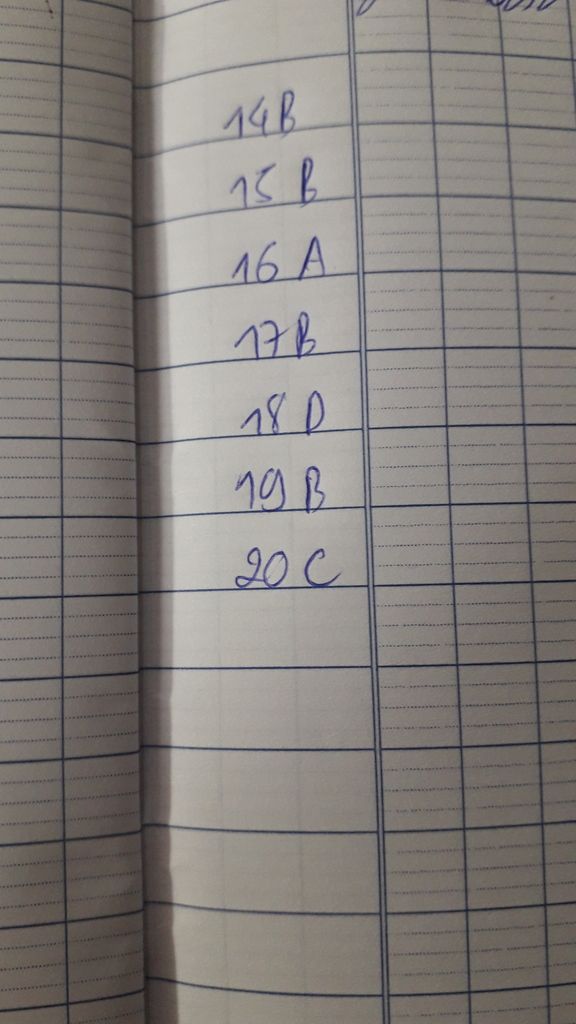 14B
15 B
16 A
17B
18 D
19 B
20 C